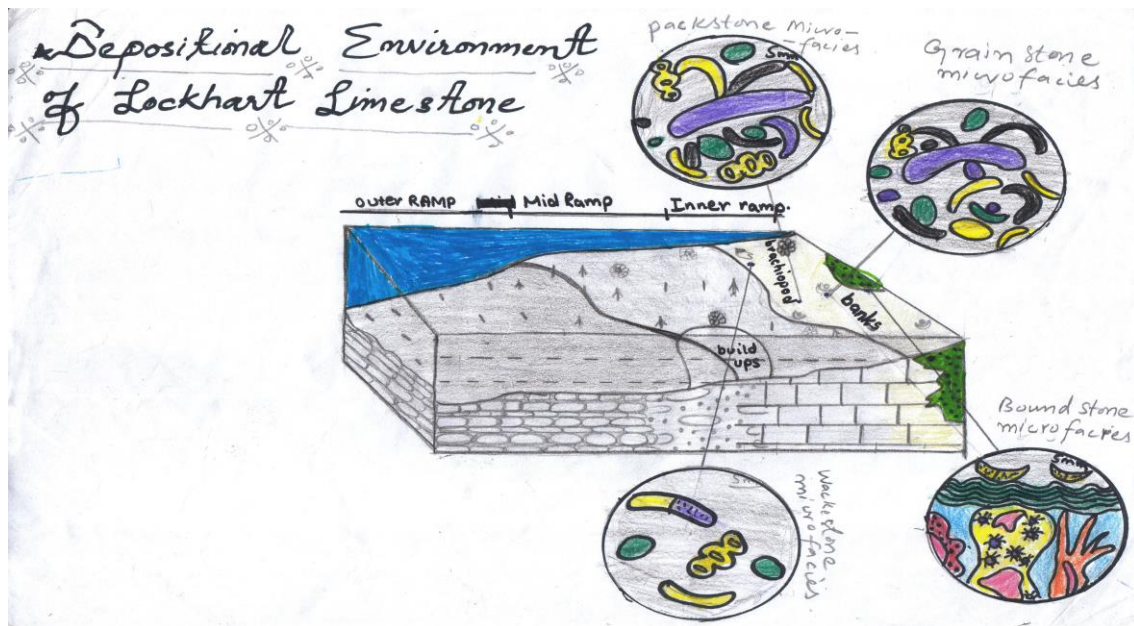 Depositional Environment
of Lockhart Limestone
packstone micro-
facies
5mm
Grain stone
microfacies
outer RAMP
Mid Ramp
Inner ramp.
brachiopod
banks
build
ups
Bound stone
microfacies
5mm
Wackestone
microfacies.
5mm